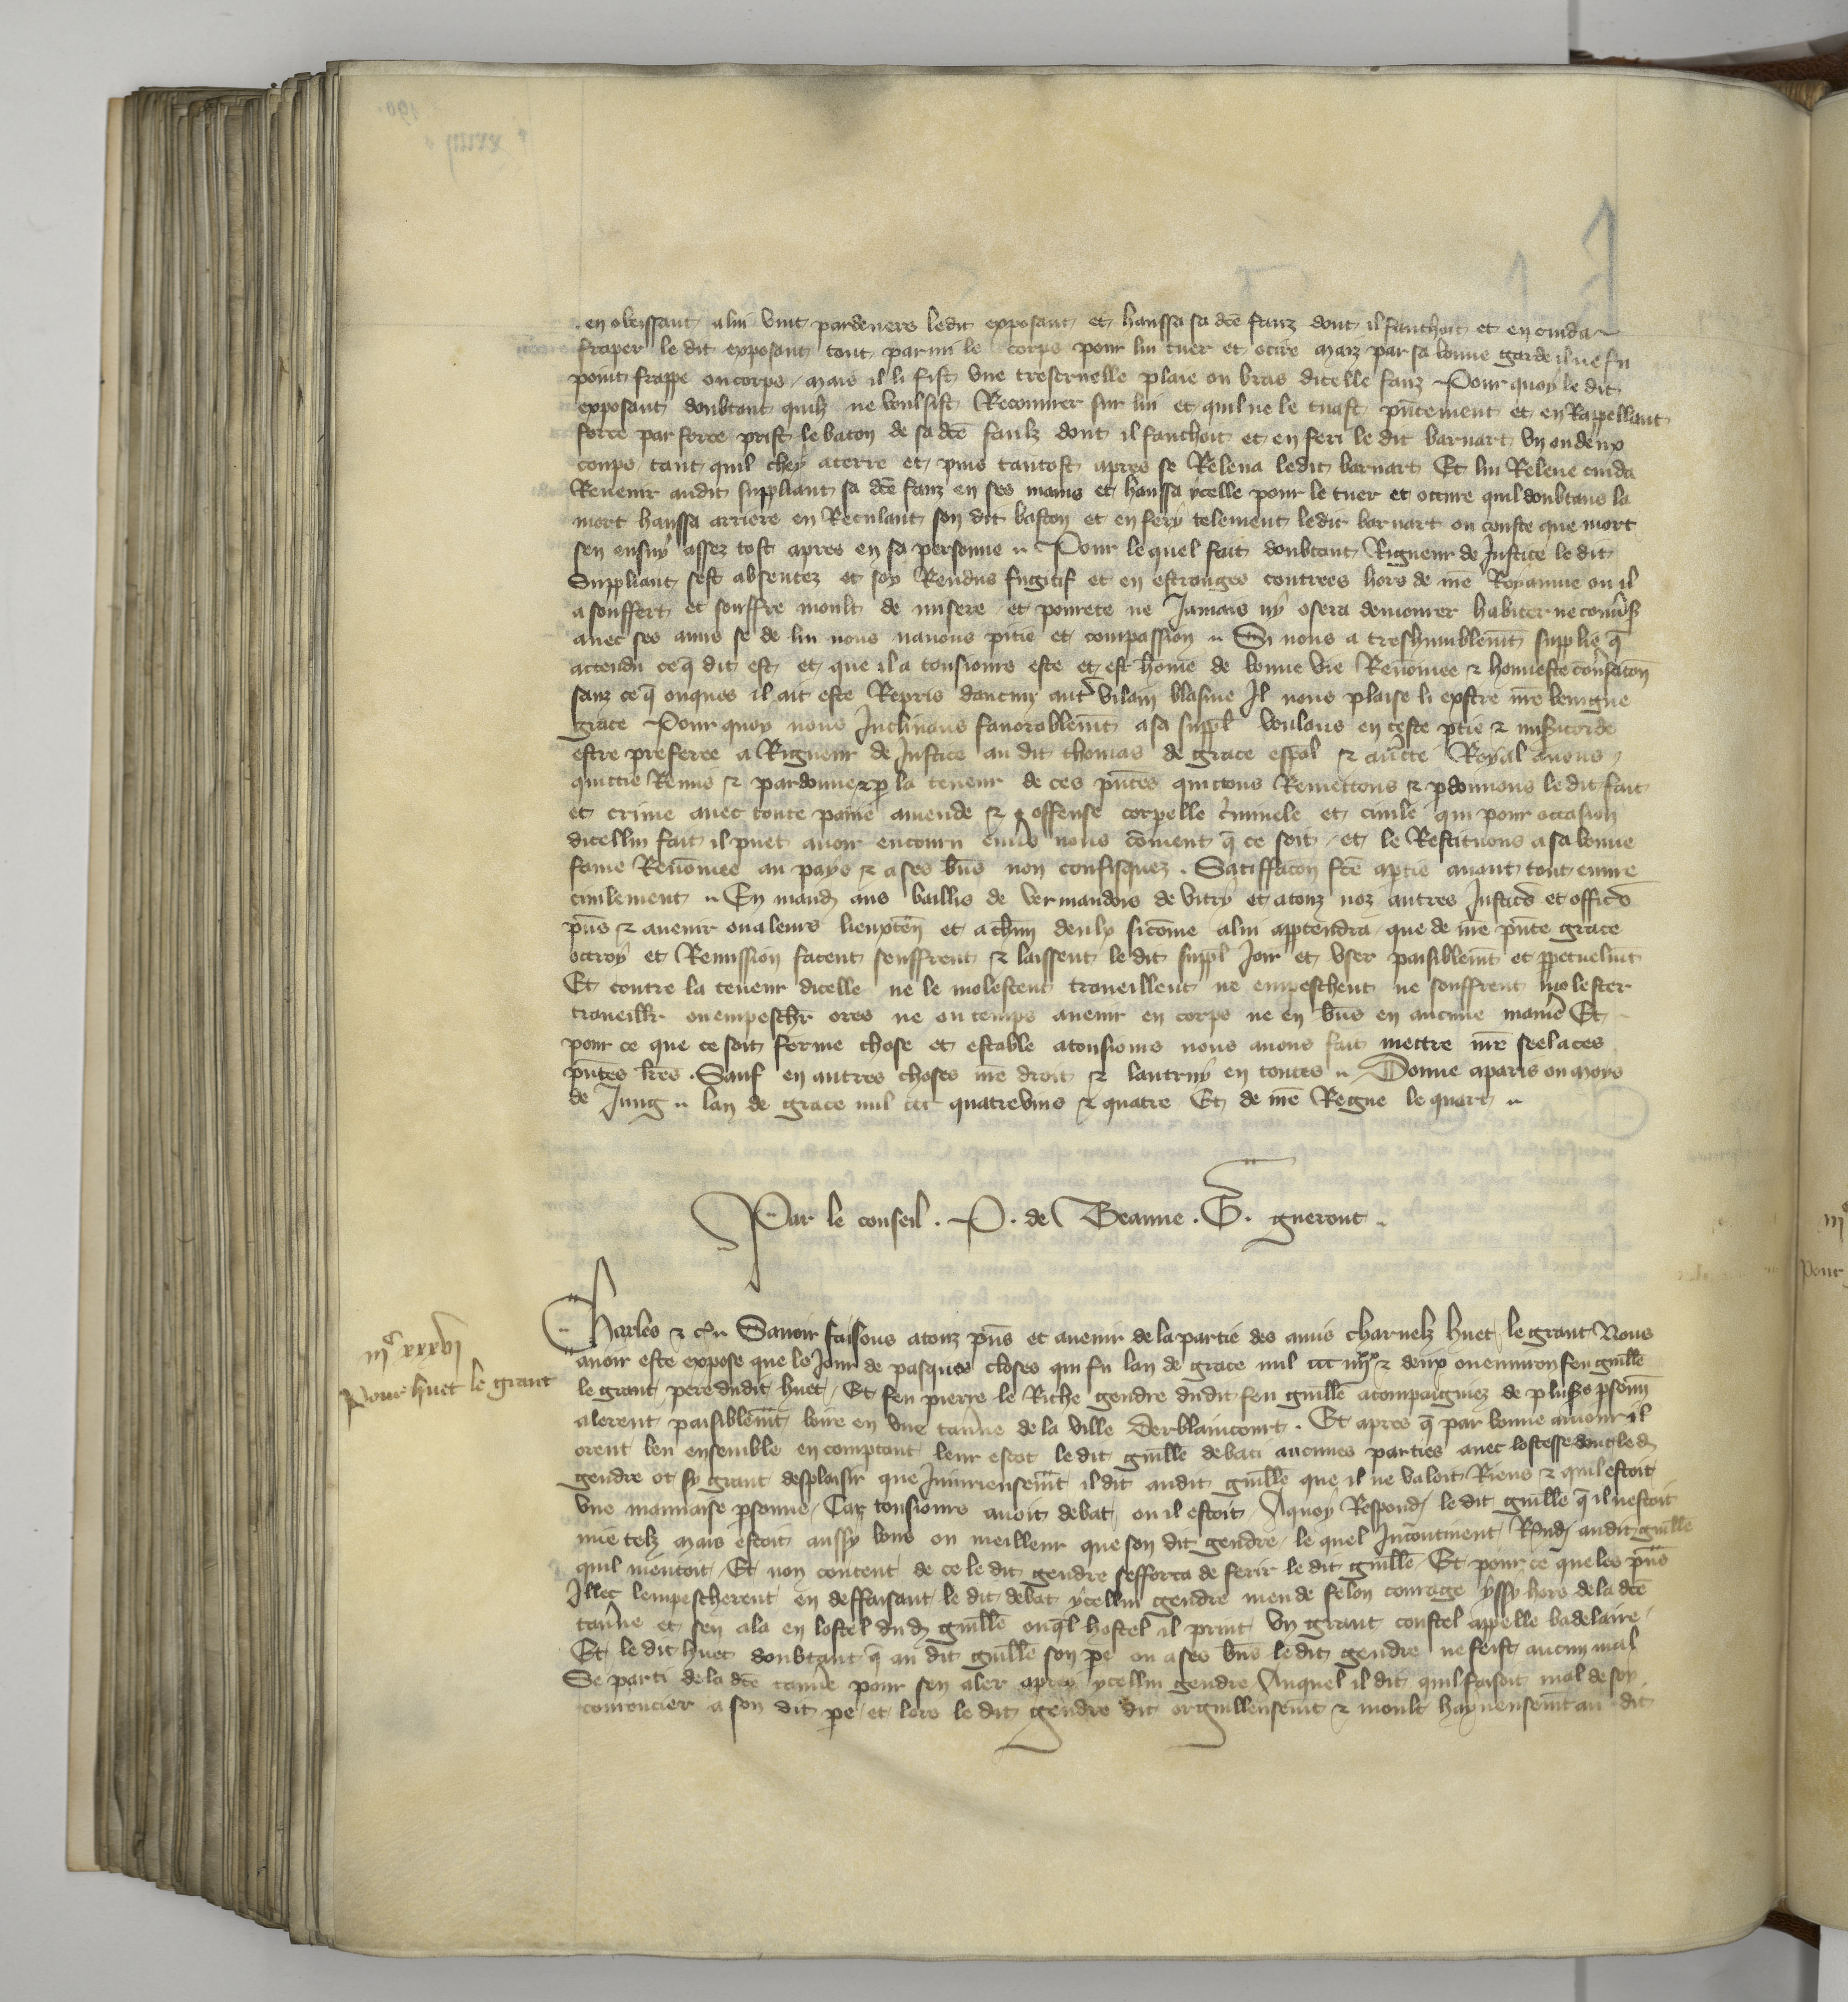 en obeissant a lui vint pardevers ledit exposant et haussa sa dce fauz dont il fauchoit et en cuida
fraper le dit exposant tout parmi le corps pour lui tuer et ocire maiz par sa bonne garde il ne fu
point frappe ou corps / mais il li fist une trescruelle plaie ou bras dicelle fauz Pour quoy le dit
exposant doubtant quilz ne voulsist Recouvrer sur lui et quil ne le tuast pntement et en Rappellant
force par force prist le baton de sa dce faulz dont il fauchoit et en feri le dit barnart un ou deux
coups / tant quil chey a terre et puis tantost apres se Releva ledit barnart Et lui Releve cuida
Revenir audit suppliant sa dce fauz en ses mains et haussa ycelle pour le tuer et occire quil doubtans la
mort haussa arriere en Reculant son dit baston et en fery telement ledit barnart ou couste que mort
sen ensuy assez tost apres en sa personne Pour lequel fait doubtant Rigueur de Justice le dit
Suppliant sest absentez et soy Rendus fugitif et en estranges contrees hors de nre Royaume ou il
a souffert et souffre moult de misere et povrete ne Jamais ny osera demourer habiter ne convs
avec ses amis se de lui nous navons pitie et compassion Si nous a treshumblemt supplie q
actendu ce q dit est et que il a tousiours este et est home de bonne vie Renomee & honneste convsacon
sanz ce q onques il ait este Repris daucun autre vilain blasme Il nous plaise li expstre nre benigne
grace Pour quoy nous Inclinans favorablemt a sa suppl voulans en ceste ptie & misicorde
estre preferee a Rigueur de Justice au dit thomas de grace espal & aucte Royal avons
quictie Remis & pardonne & p la teneur de ces pntes quictons Remettons & pdonnons le dit fait
et crime avec toute paine amende & offense corpelle criminele et civile qui pour occasion
dicellui fait il puet avoir encouru envs nous coment q ce soit et le Restituons a sa bonne
fame Renomee au pays & a ses bns non confisquez . Satiffacon fce a ptie avant tout euvre
civilement En mand aus baillis de vermandois de vitry et a touz noz autres Justic et offic
pns & avenir ou a leurs lieuxten et a chun deulx sicome a lui apptendra que de nre pnte grace
octroy et Remission facent seuffrent & laissent le dit suppl Joir et user paisiblemt et ppetuelmt
Et contre la teneur dicelle ne le molestent traveillent ne empeschent ne souffrent molester
traveillr ou empeschr ores ne ou temps avenir en corps ne en bns en aucune manie Et
pour ce que ce soit ferme chose et estable a tousiours nous avons fait mettre nre seel a ces
pntes lres . Sauf en autres choses nre droit & lautruy en toutes Donne a paris ou mois
de Jung lan de grace mil ccc quatrevins & quatre Et de nre Regne le quart
Par le conseil . P . de Beaune . G . gueront
iijc xxxvj
Pour huet le grant
Charles &c Savoir faisons a touz pns et avenir de la partie des amis charnelz huet le grant Nous
avoir este expose que le Jour de pasques closes qui fu lan de grace mil ccc iiijxx & deux ou environ feu guille
le grant pere dudit huet Et feu pierre le Riche gendre dudit feu guille acompaigniez de plusrs psonn
alerent paisiblemt boire en une tavne de la ville Derblaincourt . Et apres q par bonne amour il
orent beu ensemble en comptant leur escot le dit guille debati aucunes parties avec lostesse dont led
gendre ot sy grant desplaisir que Iniurieusemt il dit audit guille que il ne valoit Riens & quil estoit
une mauvaise psonne Car tousiours avoit debat ou il estoit Aquoy Respond le dit guille q il nestoit
mie telz mais estoit aussy bons ou meilleur que son dit gendre le quel Incontinent Rpnd audit guille
quil mentoit Et non content de ce le dit gendre sefforca de ferir le dit guille Et pour ce que les pns
Illec lempescherent en deffaisant le dit debat ycellui gendre meu de felon courage yssy hors de la dce
tavne et sen ala en lostel dud guille ouql hostel il print un grant coustel appelle badelaire
Et le dit huet doubtant q au dit guille son pe ou a ses bns le dit gendre ne feist aucun mal
Se parti de la dce tavne pour sen aler apres ycellui gendre Auquel il dit quil faisoit mal de soy
courroucier a son dit pe et lors le dit gendre dit orguilleusemt & moult hayneusemt au dit